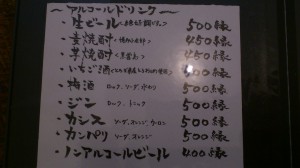 ～アルコールドリンク～
・生ビール 500縁
・麦焼酎 450縁
・芋焼酎 450縁
・いちご酒 500縁
・梅酒 ロック、ソーダ、水わり 500縁
・ジン ロック、トニック 500縁
・カシス ソーダ、オレンジ、ウーロン 500縁
・カンパリ ソーダ、オレンジ 500縁
・ノンアルコールビール 400縁